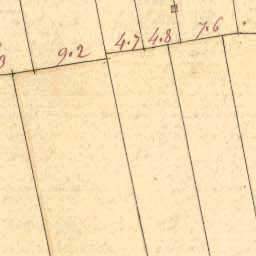 9.2 4.7 4.8 7.6